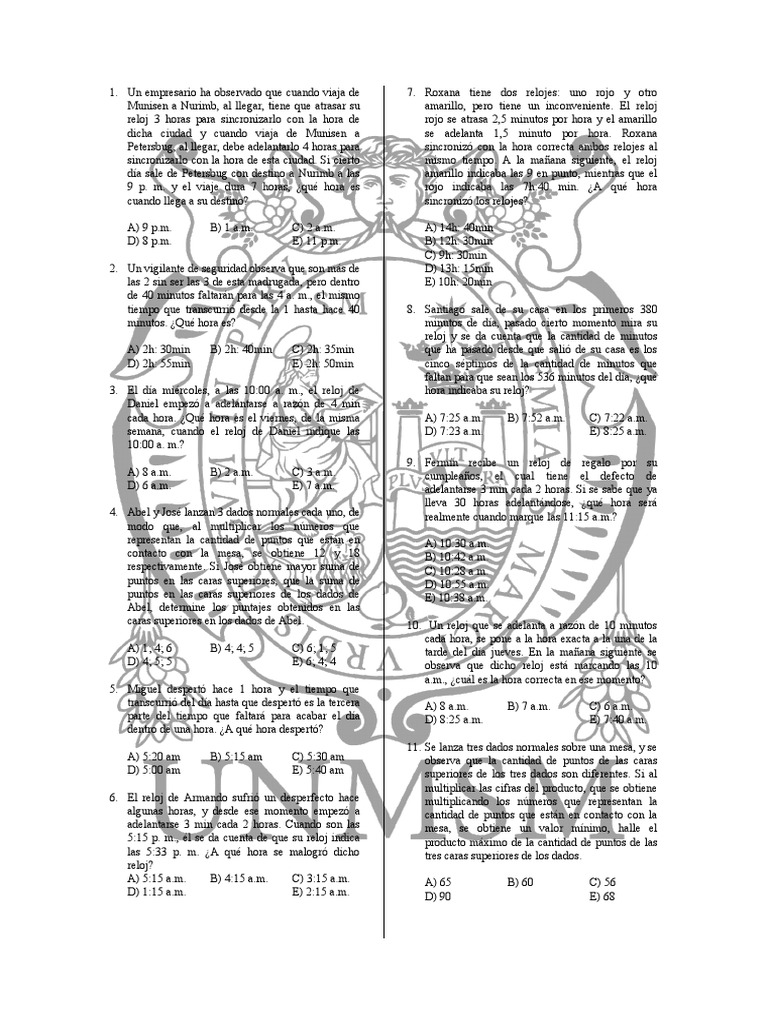 1. Un empresario ha observado que cuando viaja de
Munisen a Nurimb, al llegar, tiene que atrasar su
reloj 3 horas para sincronizarlo con la hora de
dicha ciudad y cuando viaja de Munisen a
Petersbug, al llegar, debe adelantarlo 4 horas para
sincronizarlo con la hora de esta ciudad. Si cierto
día sale de Petersbug con destino a Nurimb a las
9 p. m. y el viaje dura 7 horas, ¿qué hora es
cuando llega a su destino?
A) 9 p.m. B) 1 a.m. C) 2 a.m.
D) 8 p.m. E) 11 p.m.
2. Un vigilante de seguridad observa que son más de
las 2 sin ser las 3 de esta madrugada, pero dentro
de 40 minutos faltarán para las 4 a. m., el mismo
tiempo que transcurrió desde la 1 hasta hace 40
minutos. ¿Qué hora es?
A) 2h: 30min B) 2h: 40min C) 2h: 35min
D) 2h: 55min E) 2h: 50min
3. El día miércoles, a las 10:00 a. m., el reloj de
Daniel empezó a adelantarse a razón de 4 min
cada hora. ¿Qué hora es el viernes, de la misma
semana, cuando el reloj de Daniel indique las
10:00 a. m.?
A) 8 a.m. B) 2 a.m. C) 3 a.m.
D) 6 a.m. E) 7 a.m.
4. Abel y José lanzan 3 dados normales cada uno, de
modo que, al multiplicar los números que
representan la cantidad de puntos que están en
contacto con la mesa, se obtiene 12 y 18
respectivamente. Si José obtiene mayor suma de
puntos en las caras superiores, que la suma de
puntos en las caras superiores de los dados de
Abel, determine los puntajes obtenidos en las
caras superiores en los dados de Abel.
A) 1; 4; 6 B) 4; 4; 5 C) 6; 1; 5
D) 4; 5; 5 E) 6; 4; 4
5. Miguel despertó hace 1 hora y el tiempo que
transcurrió del día hasta que despertó es la tercera
parte del tiempo que faltará para acabar el día
dentro de una hora. ¿A qué hora despertó?
A) 5:20 am B) 5:15 am C) 5:30 am
D) 5:00 am E) 5:40 am
6. El reloj de Armando sufrió un desperfecto hace
algunas horas, y desde ese momento empezó a
adelantarse 3 min cada 2 horas. Cuando son las
5:15 p. m., él se da cuenta de que su reloj indica
las 5:33 p. m. ¿A qué hora se malogró dicho
reloj?
A) 5:15 a.m. B) 4:15 a.m. C) 3:15 a.m.
D) 1:15 a.m. E) 2:15 a.m.
7. Roxana tiene dos relojes: uno rojo y otro
amarillo, pero tiene un inconveniente. El reloj
rojo se atrasa 2,5 minutos por hora y el amarillo
se adelanta 1,5 minuto por hora. Roxana
sincronizó con la hora correcta ambos relojes al
mismo tiempo. A la mañana siguiente, el reloj
amarillo indicaba las 9 en punto, mientras que el
rojo indicaba las 7h:40 min. ¿A qué hora
sincronizó los relojes?
A) 14h: 40min
B) 12h: 30min
C) 9h: 30min
D) 13h: 15min
E) 10h: 20min
8. Santiago sale de su casa en los primeros 380
minutos de día, pasado cierto momento mira su
reloj y se da cuenta que la cantidad de minutos
que ha pasado desde que salió de su casa es los
cinco séptimos de la cantidad de minutos que
faltan para que sean los 536 minutos del día, ¿qué
hora indicaba su reloj?
A) 7:25 a.m. B) 7:52 a.m. C) 7:22 a.m.
D) 7:23 a.m. E) 8:25 a.m.
9. Fermín recibe un reloj de regalo por su
cumpleaños, el cual tiene el defecto de
adelantarse 3 min cada 2 horas. Si se sabe que ya
lleva 30 horas adelantándose, ¿qué hora será
realmente cuando marque las 11:15 a.m.?
A) 10:30 a.m.
B) 10:42 a.m.
C) 10:28 a.m.
D) 10:55 a.m.
E) 10:38 a.m.
10. Un reloj que se adelanta a razón de 10 minutos
cada hora, se pone a la hora exacta a la una de la
tarde del día jueves. En la mañana siguiente se
observa que dicho reloj está marcando las 10
a.m., ¿cuál es la hora correcta en ese momento?
A) 8 a.m. B) 7 a.m. C) 6 a.m.
D) 8:25 a.m. E) 7:40 a.m.
11. Se lanza tres dados normales sobre una mesa, y se
observa que la cantidad de puntos de las caras
superiores de los tres dados son diferentes. Si al
multiplicar las cifras del producto, que se obtiene
multiplicando los números que representan la
cantidad de puntos que están en contacto con la
mesa, se obtiene un valor mínimo, halle el
producto máximo de la cantidad de puntos de las
tres caras superiores de los dados.
A) 65 B) 60 C) 56
D) 90 E) 68
UNMSM